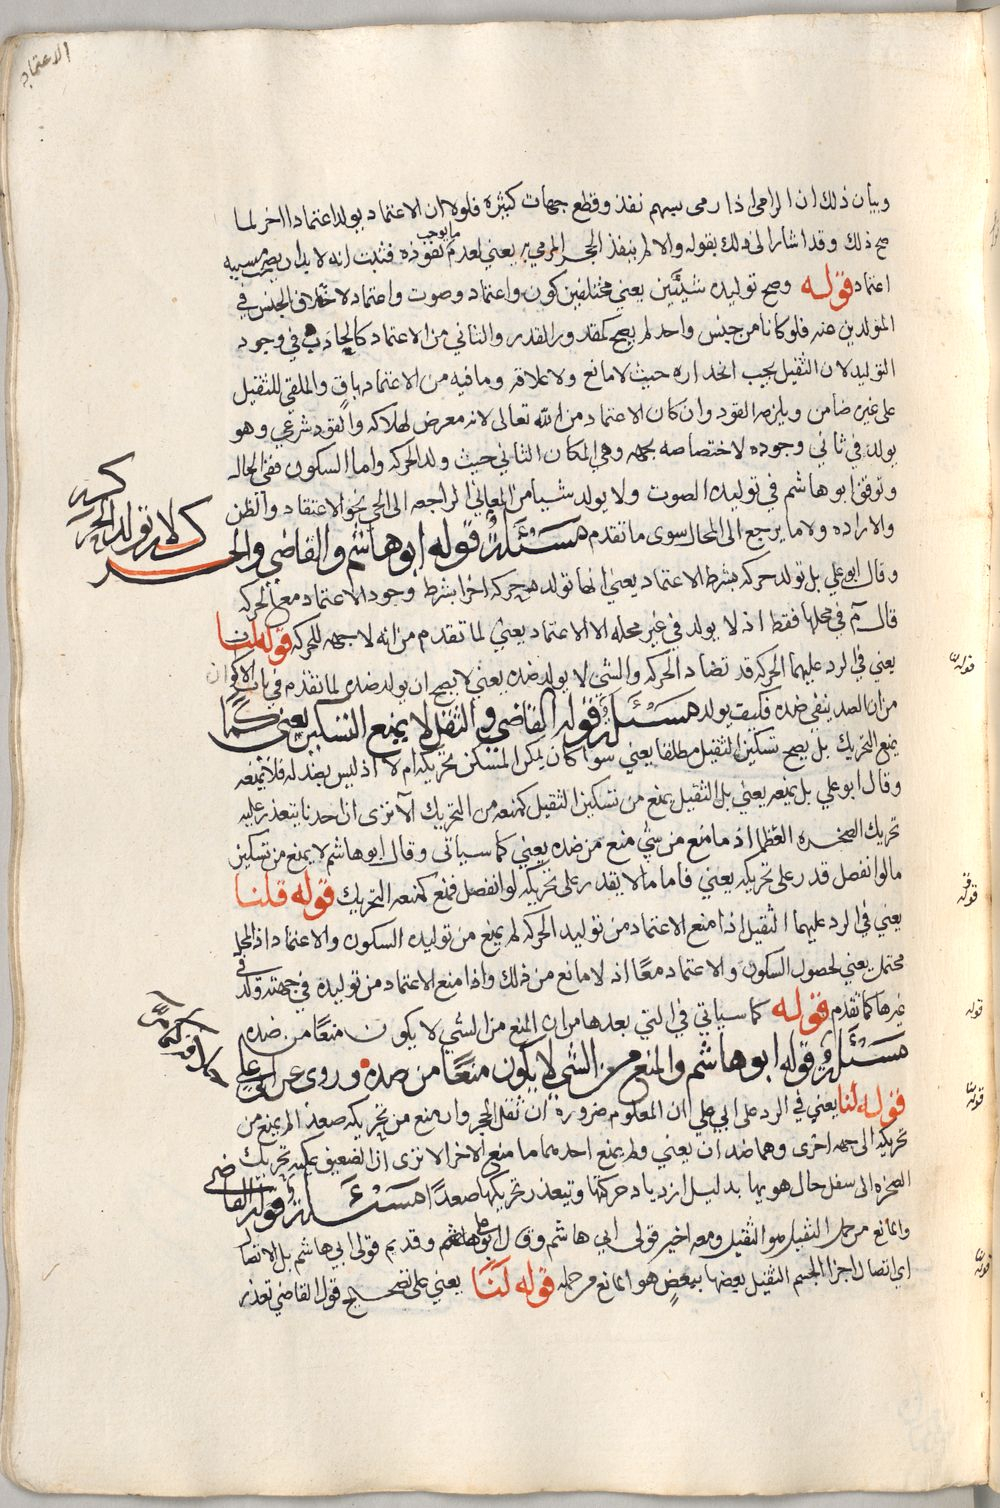 الاعتماد
وبيان ذلك ان الرامي اذا رمى بسهم نفذ وقطع جهات كثيره فلولا ان الاعتماد يولد اعتمادا اخر لما
صح ذلك وقد اشار الى ذلك بقوله والا لم ينفذ الحجر المرمي به يعني لعدم ما يوجب نفوذه فثبت انه لا بد ان يصير سببه
اعتماد قوله وصح توليده شيئين يعني مختلفين كون واعتماد وصوت واعتماد لاختلاف الجنس في
المتولدين عنه فلو كانا من جنس واحد لم يصح كمقدور القدر والثاني من الاعتماد كالحادث في وجود
التوليد لان الثقيل يجب انحداره حيث لا مانع ولا علاقه وما فيه من الاعتماد باق والملقي للثقيل
على غيره ضامن ويلزمه القود وان كان الاعتماد من الله تعالى لانه معرض لهلاكه والقود شرعي وهو
يولد في ثاني وجوده لاختصاصه بجهه وهي المكان الثاني حيث ولد الحركه واما السكون ففي الحاله
وتوقف ابو هاشم في توليده الصوت ولا يولد شيا من المعاني الراجعه الى الحي نحو الاعتقاد والظن
والاراده ولا ما يرجع الى المحال سوى ما تقدم مسئله قوله ابو هاشم والقاضي والحركه لا تولد الحركه
وقال ابو علي بل تولد حركه بشرط الاعتماد يعني انها تولد حركه اخرا بشرط وجود الاعتماد مع الحركه
قال م في محلها فقط اذ لا يولد في غير محله الا الاعتماد يعني لما تقدم من انه لا جهه للحركه قوله لنا
يعني في الرد عليهما الحركه قد تضاد الحركه والشي لا يولد ضده يعني لا يصح ان يولد ضده لما تقدم في باب الاكوان
من ان الضد ينفي ضده فكيف يولد مسئله قوله القاضي والثقل لا يمنع التسكين يعني كما
يمنع التحريك بل يصح تسكين الثقيل مطلقا يعني سوا كان يمكن المسكن تحريكه ام لا اذ ليس بضد له فلا يمنعه
وقال ابو علي بل يمنعه يعني بل الثقيل يمنع من تسكين الثقيل كمنعه من التحريك الا ترى ان احدنا يتعذر عليه
تحريك الصخره العظما اذ ما منع من شي منع من ضده يعني كما سياتي وقال ابو هاشم لا يمنع من تسكين
ما لو انفصل قدر على تحريكه يعني فاما ما لا يقدر على تحريكه لو انفصل فمنع كمنعه التحريك قوله قلنا
يعني في الرد عليهما الثقيل اذا منع الاعتماد من توليد الحركه لم يمنع من توليده السكون والاعتماد اذ المحل
محتمل يعني لحصول السكون والاعتماد معا اذ لا مانع من ذلك واذا منع الاعتماد من توليده في جهته ولد في
غيرها كما تقدم قوله كما سياتي في التي بعدها من ان المنع من الشي لا يكون منعا من ضده
مسئله قوله ابو هاشم والمنع من الشي لا يكون منعا من ضده وروي عن ابي علي
قوله لنا يعني في الرد على ابي علي ان المعلوم ضرورة ان ثقل الحجر وان منع من تحريكه صعدا لم يمنع من
تحريكه الى جهه اخرى وهما ضدان يعني ولم يمنع احدهما ما منع الاخر الا ترى ان الضعيف يمكنه تحريك
الصخره الى سفل حال هويها بدليل ازدياد حركتها ويتعذر تحريكها صعدا مسئله قوله القاضي
والمانع من حمل الثقيل هو الثقيل ومعه اخير قولي ابي هاشم وقال ابو علي وقديم قولي ابي هاشم بل الاتصال
اي اتصال اجزا الجسم الثقيل بعضها ببعض هو المانع من حمله قوله لنا يعني على تصحيح قول القاضي تعذر